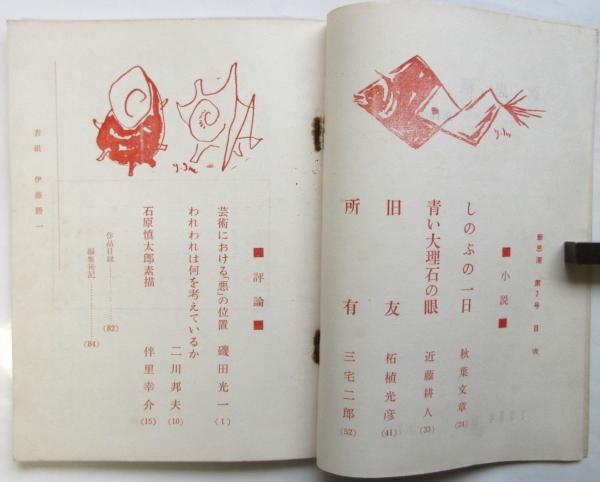 新思潮 第7号 目次
■小説■
しのぶの一日 秋葉文章 (24)
青い大理石の眼 近藤耕人 (33)
旧友 柘植光彦 (41)
所有 三宅二郎 (52)
y.Im
■評論■
芸術における「悪」の位置 磯田光一 (1)
われわれは何を考えているか 二川邦夫 (10)
石原慎太郎素描 伴里幸介 (15)
作品目録…………(82)
編集後記…………(84)
表紙 伊藤勝一
y.Im